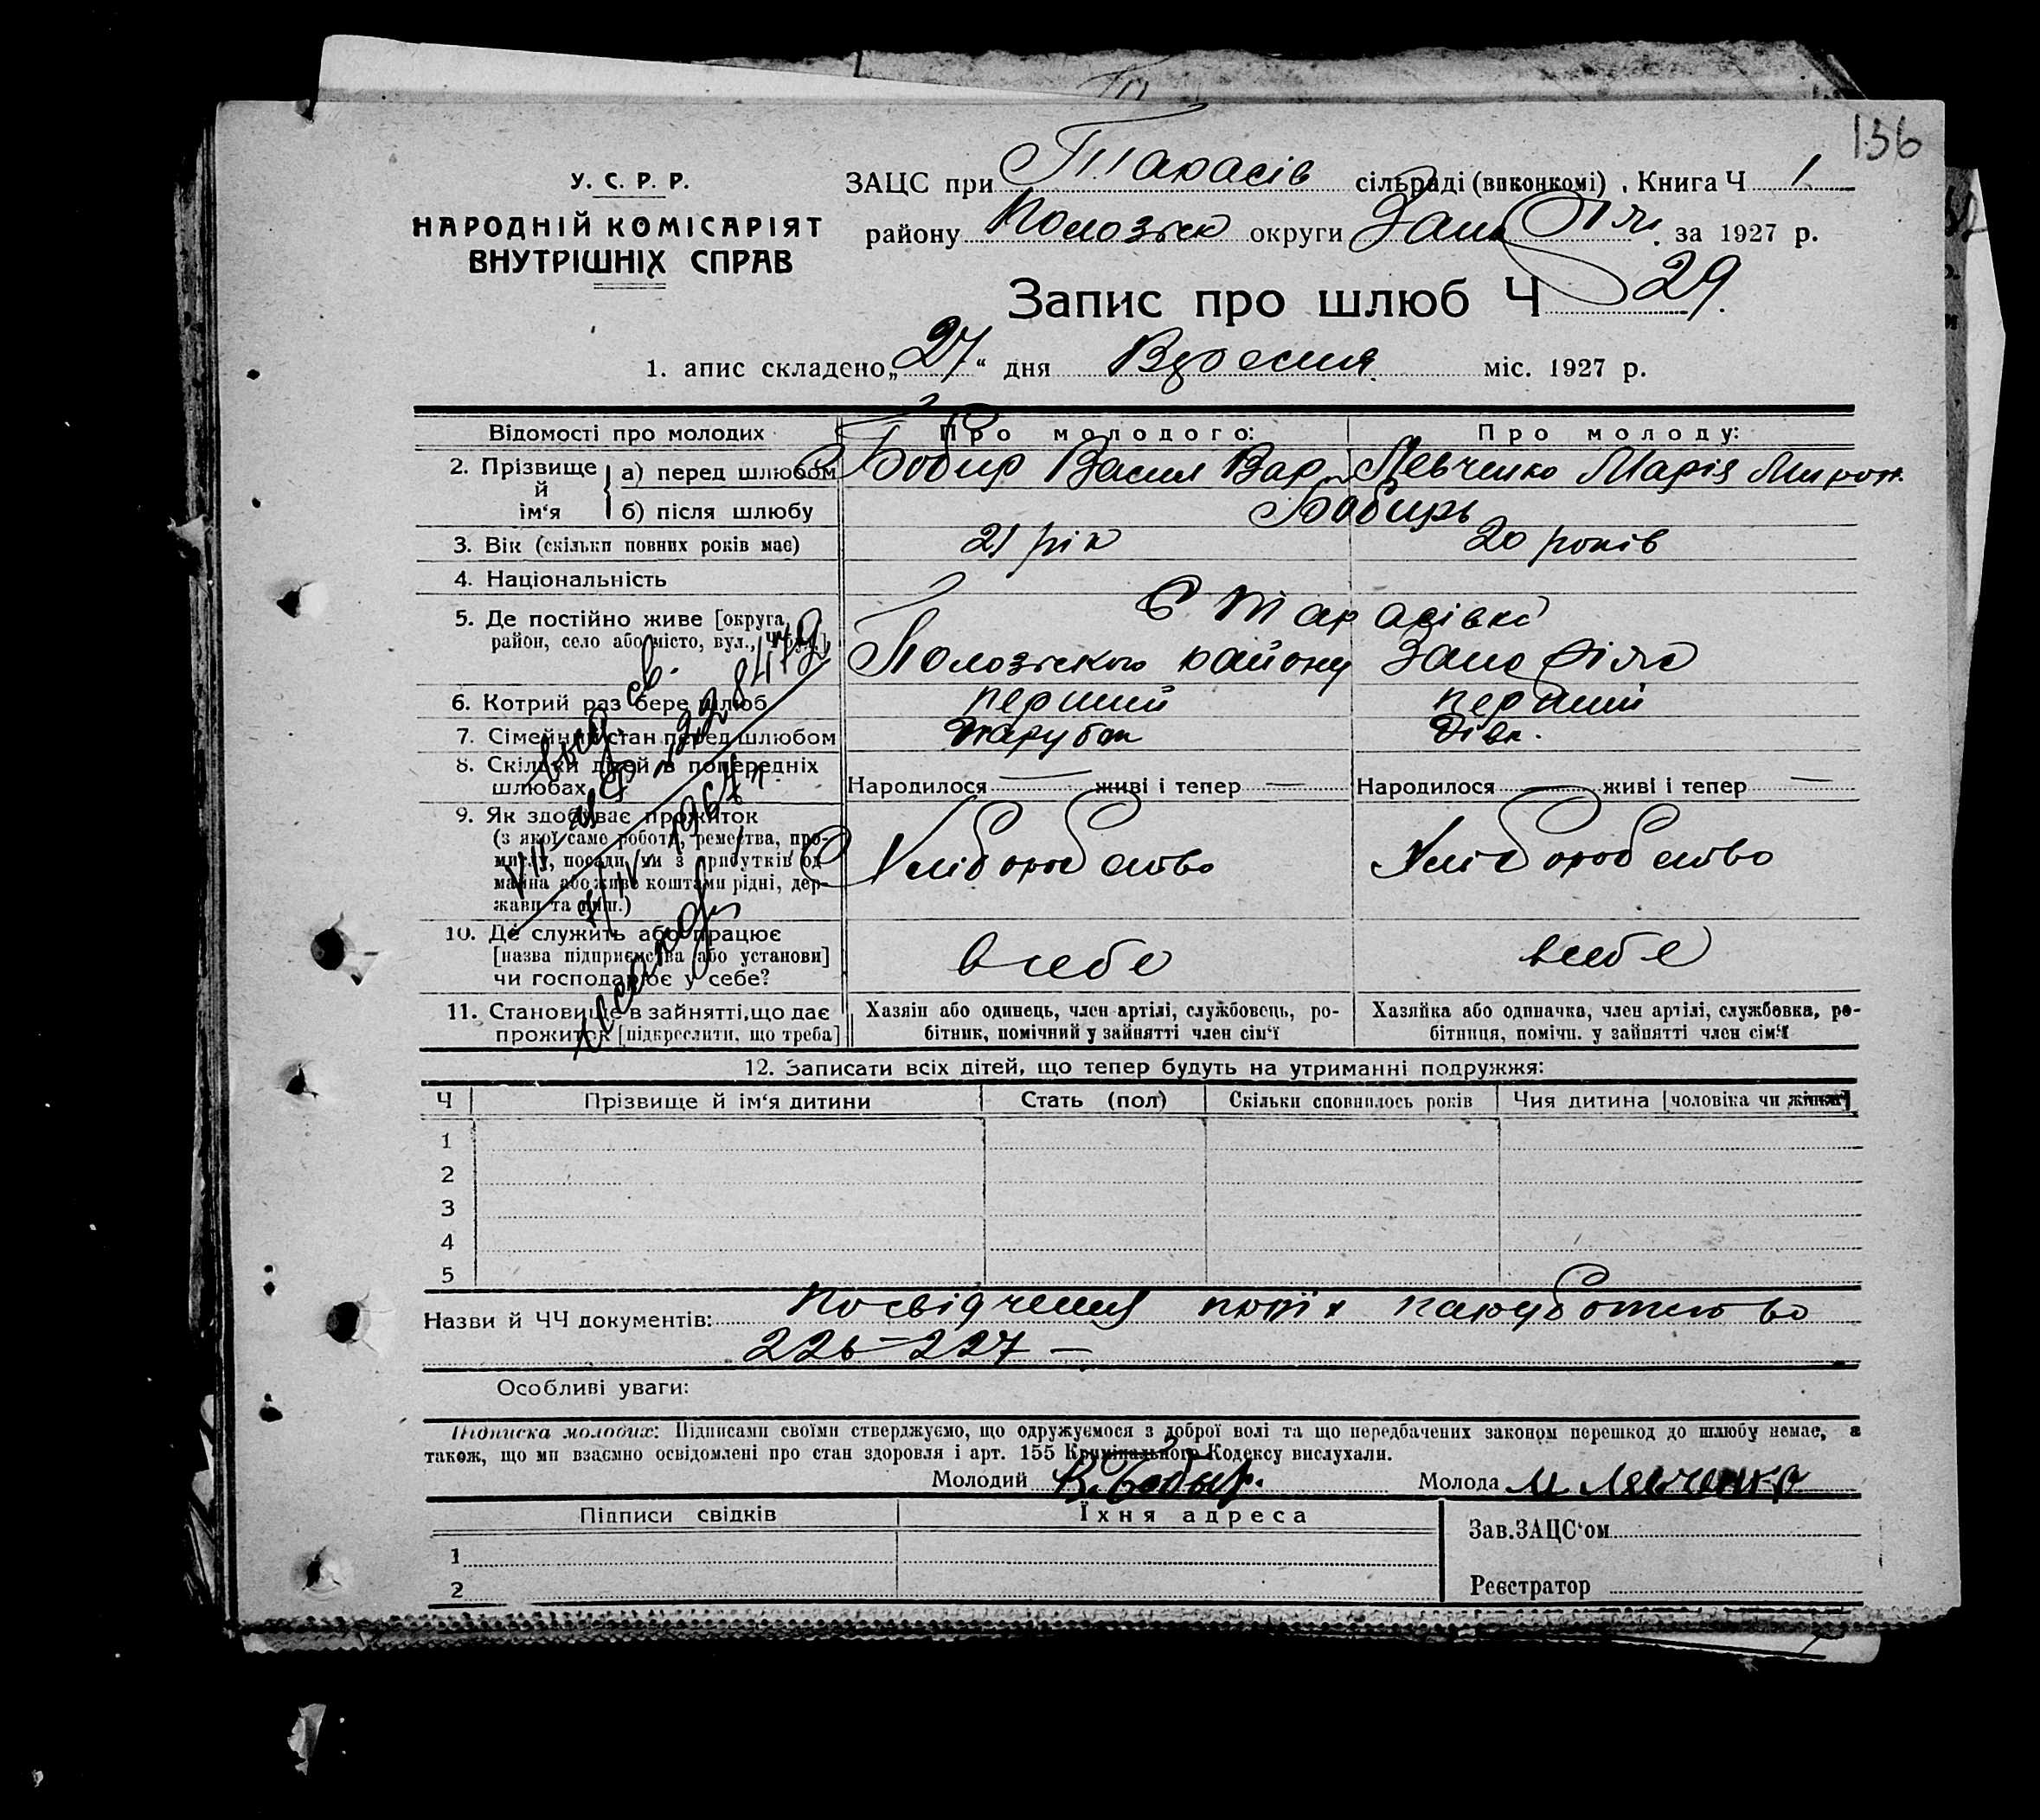 136
У. С. Р. Р.
НАРОДНІЙ КОМІСАРІЯТ
ВНУТРІШНІХ СПРАВ
ЗАЦС при Тарасів сільраді (виконкомі) , Книга Ч 1
району Полозьк округи за 1927 р.
Запис про шлюб Ч 29.
1. апис складено „27“ дня Вересня міс. 1927 р.
Відомості про молодих
Про молодого:
Про молоду:
2. Прізвище й ім‘я
а) перед шлюбом
Бобир Васил Вар
Левченко Марія Мирон.
б) після шлюбу
Бобирь
3. Вік (скільки повних років має)
21 рік
20 років
4. Національність
5. Де постійно живе [округа, район, село або місто, вул., Ч буд.]
С Тарасівка
Полозського району
6. Котрий раз бере шлюб
перший
перший
7. Сімейний стан перед шлюбом
парубок
дівк.
8. Скільки дітей в попередніх шлюбах
Народилося — живі і тепер —
Народилося — живі і тепер —
9. Як здобуває прожиток
(з якої саме роботи, ремества, про-
мислу, посади чи з прибутків од
майна або живе коштами рідні, дер-
жави та инш.)
Хліборобство
Хліборобство
10. Де служить або працює
[назва підприємства або установи]
чи господарює у себе?
всебе
всебе
11. Становище в зайнятті, що дає
прожиток [підкреслити, що треба]
Хазяїн або одинець, член артілі, службовець, ро-
бітник, помічний у зайнятті член сім‘ї
Хазяйка або одиначка, член артілі, службовка, ро-
бітниця, помічн. у зайнятті член сім‘ї
выд. св.
1967
12. Записати всіх дітей, що тепер будуть на утриманні подружжя:
Ч
Прізвище й ім‘я дитини
Стать (пол)
Скільки сповнилось років
Чия дитина [чоловіка чи жінки]
1
2
3
4
5
Назви й ЧЧ документів: Посвідчення
226-227 —
Особливі уваги:
Підписка молодих: Підписами своїми стверджуємо, що одружуємося з доброї волі та що передбачених законом перешкод до шлюбу немає, а
також, що ми взаємно освідомлені про стан здоровля і арт. 155 Кримінального Кодексу вислухали.
Молодий В. Бобыр.
Молода М Левченко
Підписи свідків
Їхня адреса
1
2
Зав.ЗАЦС‘ом
Реєстратор